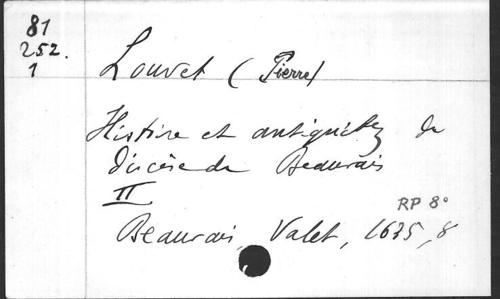 81
252.
1
Louvet (Pierre)
Histoire et antiquitez du
diocèse de Beauvais
II
RP 8°
Beauvais, Valet, 1635, 8